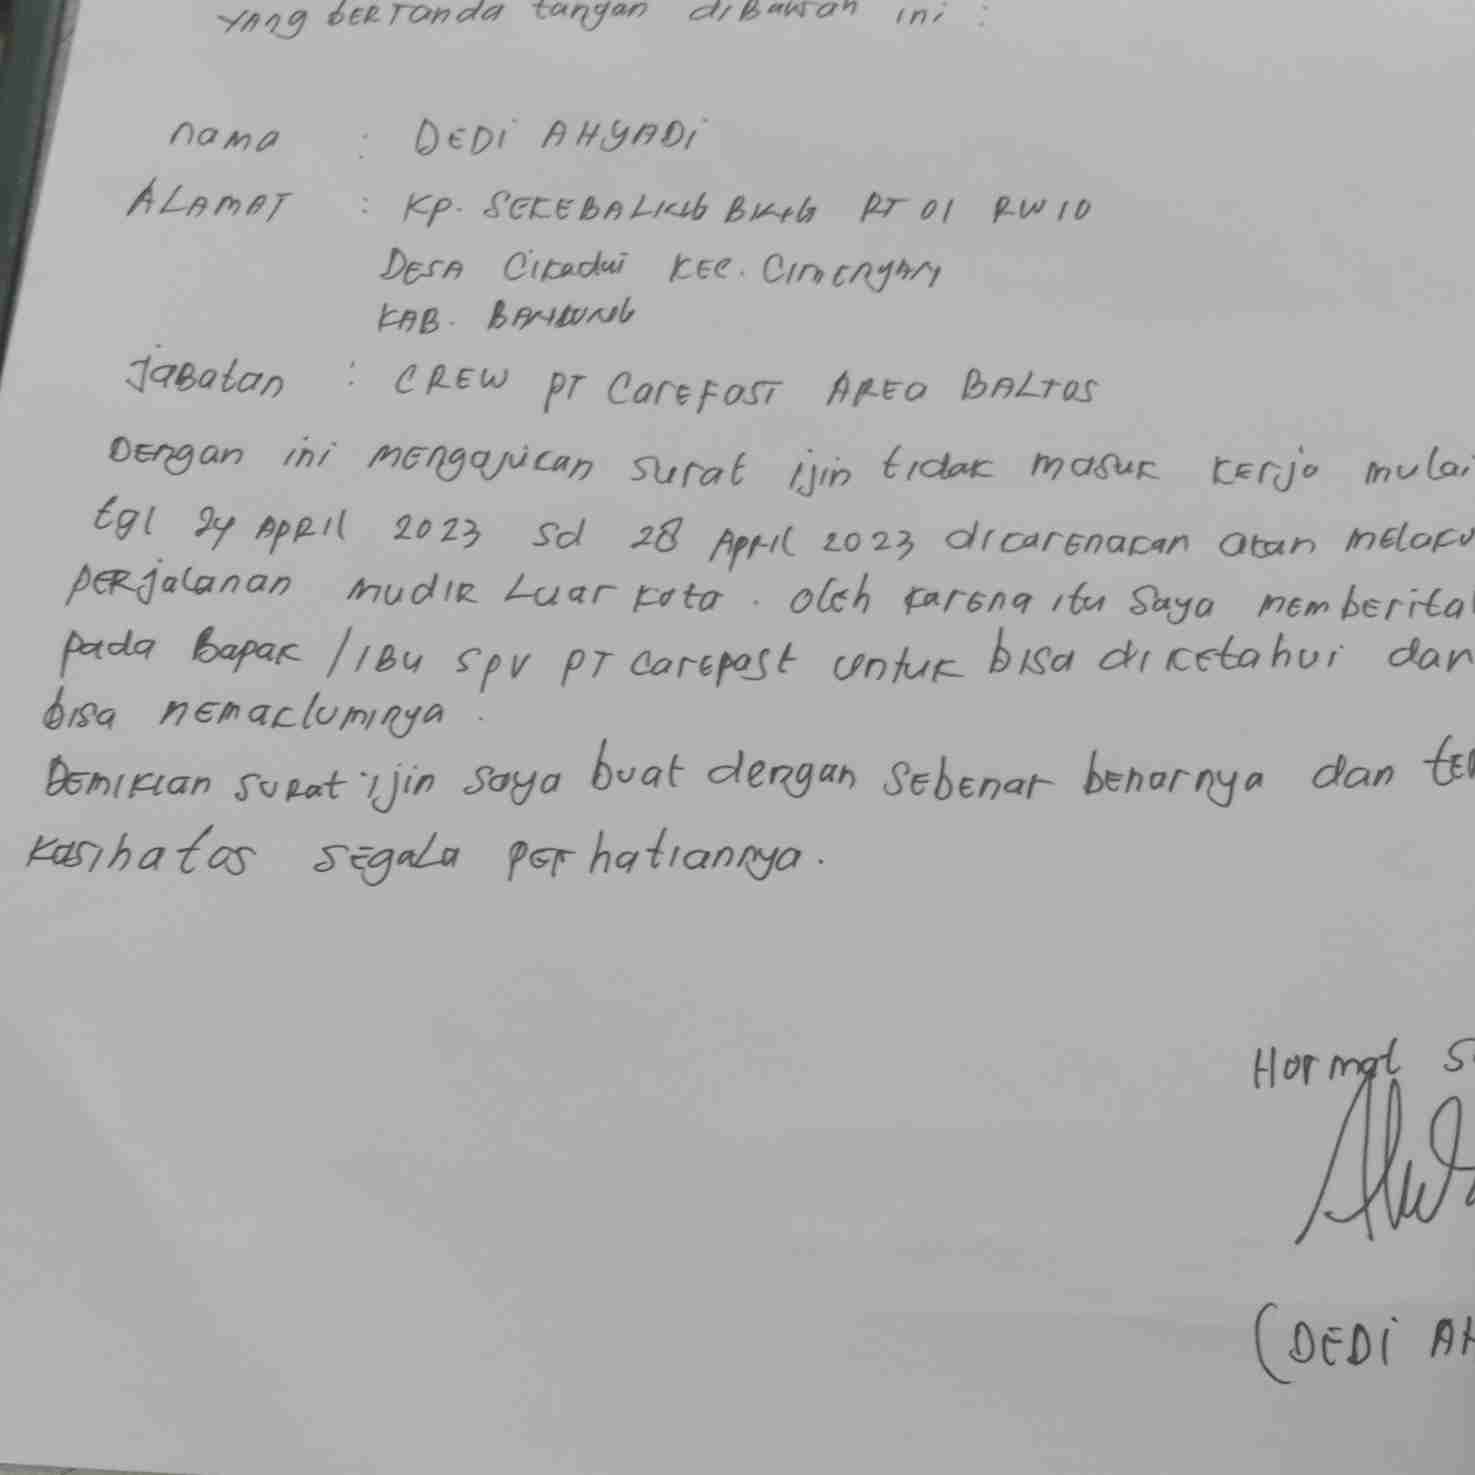 Yang bertanda tangan dibawah ini :
nama : DEDI AHYADI
ALAMAT : KP. SEKEBALING RT 01 RW 10
DESA Cikadui KEC. CIMENYAN
KAB. BANDUNG
Jabatan : CREW PT CAREFAST AREA BALTOS
Dengan ini mengajukan surat ijin tidak masuk kerja mulai
tgl 24 APRIL 2023 sd 28 April 2023 dikarenakan akan melaku
perjalanan mudik Luar kota. oleh karena itu saya memberita
pada Bapak / IBU SPV PT carepast untuk bisa diketahui dan
bisa memakluminya.
Demikian surat ijin saya buat dengan sebenar benarnya dan te
kasihatas segala perhatiannya.
Hormat S
(DEDI AH